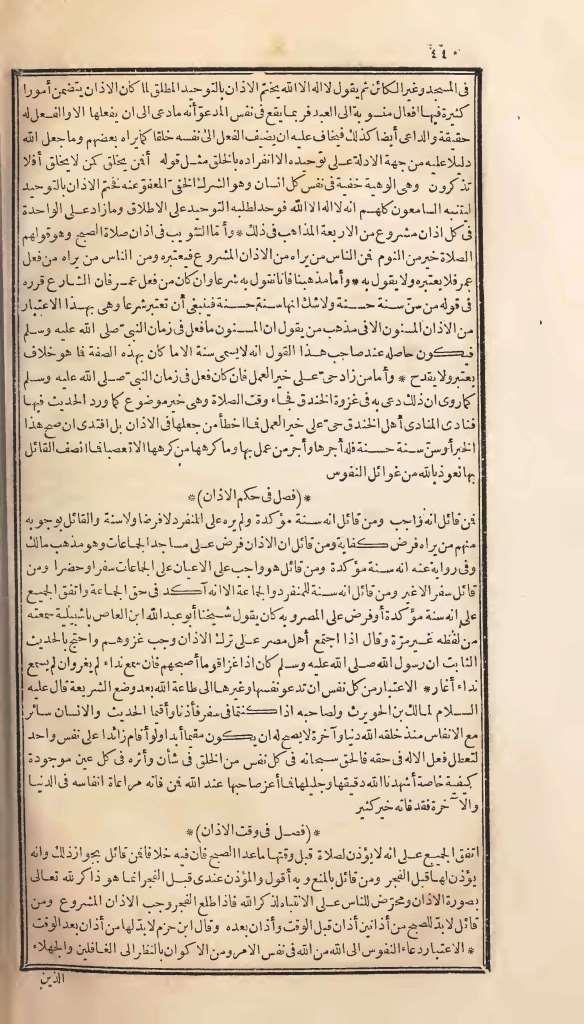 ٤٤٠
فى المسجد وغير الكائن ثم يقول لا اله الا الله يختم الاذان بالتوحيد المطلق لما كان الاذان يتضمن أمورا
كثيرة فيها افعال منسوبة الى العبد فربما يقع فى نفس المدعو أنه مادعى الى ان يفعلها الا والفعل له
حقيقة والداعى أيضا كذلك فيخاف عليه ان يضيف الفعل الى نفسه خلقا كما يراه بعضهم وما جعل الله
دليلا عليه من جهة الادلة على توحيده الا انفراده بالخلق مثل قوله أفمن يخلق كمن لا يخلق أفلا
تذكرون وهى الوهية خفية فى نفس كل انسان وهو الشرك الخفى المعفو عنه فختم الاذان بالتوحيد
ليتنبه السامعون كلهم انه لا اله الا الله فوحد اطلبه التوحيد على الاطلاق وما زاد على الواحدة
فى كل اذان مشروع من الاربعة المذاهب فى ذلك * وأما التثويب فى اذان صلاة الصبح وهو قولهم
الصلاة خير من النوم فمن الناس من يراه من الاذان المشروع فيعتبره ومن الناس من يراه من فعل
عمر فلا يعتبره ولا يقول به * وأما مذهبنا فانا نقول به شرعا وان كان من فعل عمر فان الشارع قرره
فى قوله من سن سنة حسنة ولاشك انها سنة حسنة فينبغى أن تعتبر شرعا وهى بهذا الاعتبار
من الاذان المسنون الا فى مذهب من يقول ان المسنون ما فعل فى زمان النبى صلى الله عليه وسلم
فيكون حاصله عند صاحب هذا القول انه لا يسمى سنة الا ما كان بهذه الصفة فما هو خلاف
يعتبر ولا يقدح * وأما من زاد حى على خير العمل فان كان فعل فى زمان النبى صلى الله عليه وسلم
كما روى ان ذلك دعى به فى غزوة الخندق فجاء وقت الصلاة وهى خير موضوع كما ورد الحديث فيها
فنادى المنادى أهل الخندق حى على خير العمل فما اخطأ من جعلها فى الاذان بل اقتدى ان صح هذا
الخبر أو سن سنة حسنة فله أجرها وأجر من عمل بها وما كرهها من كرهها الا تعصبا فما انصف القائل
بها نعوذ بالله من غوائل النفوس
*(فصل فى حكم الاذان)*
فمن قائل انه واجب ومن قائل انه سنة مؤكدة ولم يره على المنفرد لا فرضا ولا سنة والقائل بوجوبه
منهم من يراه فرض كفاية ومن قائل ان الاذان فرض على مساجد الجماعات وهو مذهب مالك
وفى رواية عنه انه سنة مؤكدة ومن قائل هو واجب على الاعيان على الجماعات سفرا وحضرا ومن
قائل سفرا لا غير ومن قائل انه سنة للمنفرد والجماعة الا انه آكد فى حق الجماعة واتفق الجميع
على انه سنة مؤكدة أو فرض على المصر وبه كان يقول شيخنا أبو عبد الله ابن العاص باشبيلية سمعته
من لفظه غير مرة وقال اذا اجتمع أهل مصر على ترك الاذان وجب غزوهم واحتج بالحديث
الثابت ان رسول الله صلى الله عليه وسلم كان اذا غزا قوما أصبحهم فان سمع نداء لم يغر وان لم يسمع
نداء أغار * الاعتبار من كل نفس ان تدعو نفسها وغيرها الى طاعة الله بعد وضع الشريعة قال عليه
السلام لمالك بن الحويرث ولصاحبه اذا كنتما فى سفر فأذنا وأقيما الحديث والانسان سائر
مع الانفاس منذ خلقه الله دنيا وآخرة لا يصح له ان يكون مقيما أبدا ولو أقام زائدا على نفس واحد
لتعطل فعل الاله فى حقه فالحق سبحانه فى كل نفس من الخلق فى شأن وأثره فى كل عين موجودة
كيفية خاصة أشهدنا الله دقيقها وجليلها فما أعز صاحبها عند الله فمن فاته مراعاة انفاسه فى الدنيا
والآخرة فقد فاته خير كثير
*(فصل فى وقت الاذان)*
اتفق الجميع على انه لا يؤذن لصلاة قبل وقتها ماعدا الصبح فان فيه خلافا فمن قائل بجواز ذلك وانه
يؤذن لها قبل الفجر ومن قائل بالمنع وبه أقول والمؤذن عندى قبل الفجر انما هو ذاكر لله تعالى
بصورة الاذان ومحرض للناس على الانتباه لذكر الله فاذا طلع الفجر وجب الاذان المشروع ومن
قائل لابد للصبح من أذانين أذان قبل الوقت وأذان بعده وقال ابن حزم لابد لها من أذان بعد الوقت
* الاعتبار دعاء النفوس الى الله من الله فى نفس الامر ومن الاكوان بالنظر الى الغافلين والجهلاء
الذين